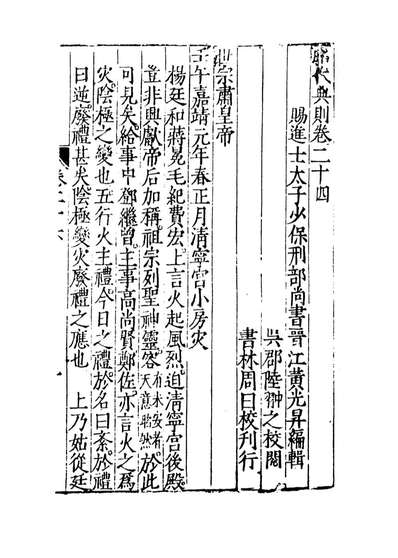 昭代典則卷二十四
賜進士太子少保刑部尚書晉江黃光昇編輯
吳郡陸翀之校閱
書林周曰校刊行
世宗肅皇帝
壬午嘉靖元年春正月清寧宮小房災
楊廷和蔣冕毛紀費宏上言火起風烈迫清寧宮後殿
豈非興獻帝后加稱祖宗列聖神靈容有未安者天意昭然於此
可見矣給事中鄧繼曾主事高尚賢鄭佐亦言火之為
災陰極之變也五行火主禮今日之禮於名曰紊於禮
曰逆廢禮甚矣陰極變災廢禮之應也　上乃始從廷